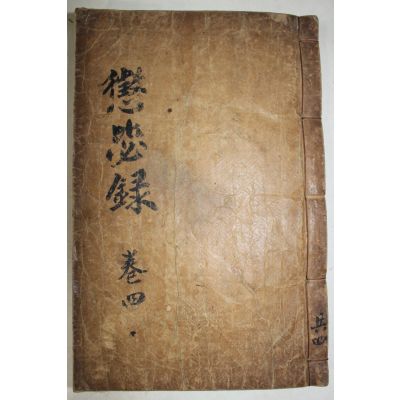 懲毖録
卷四
共四